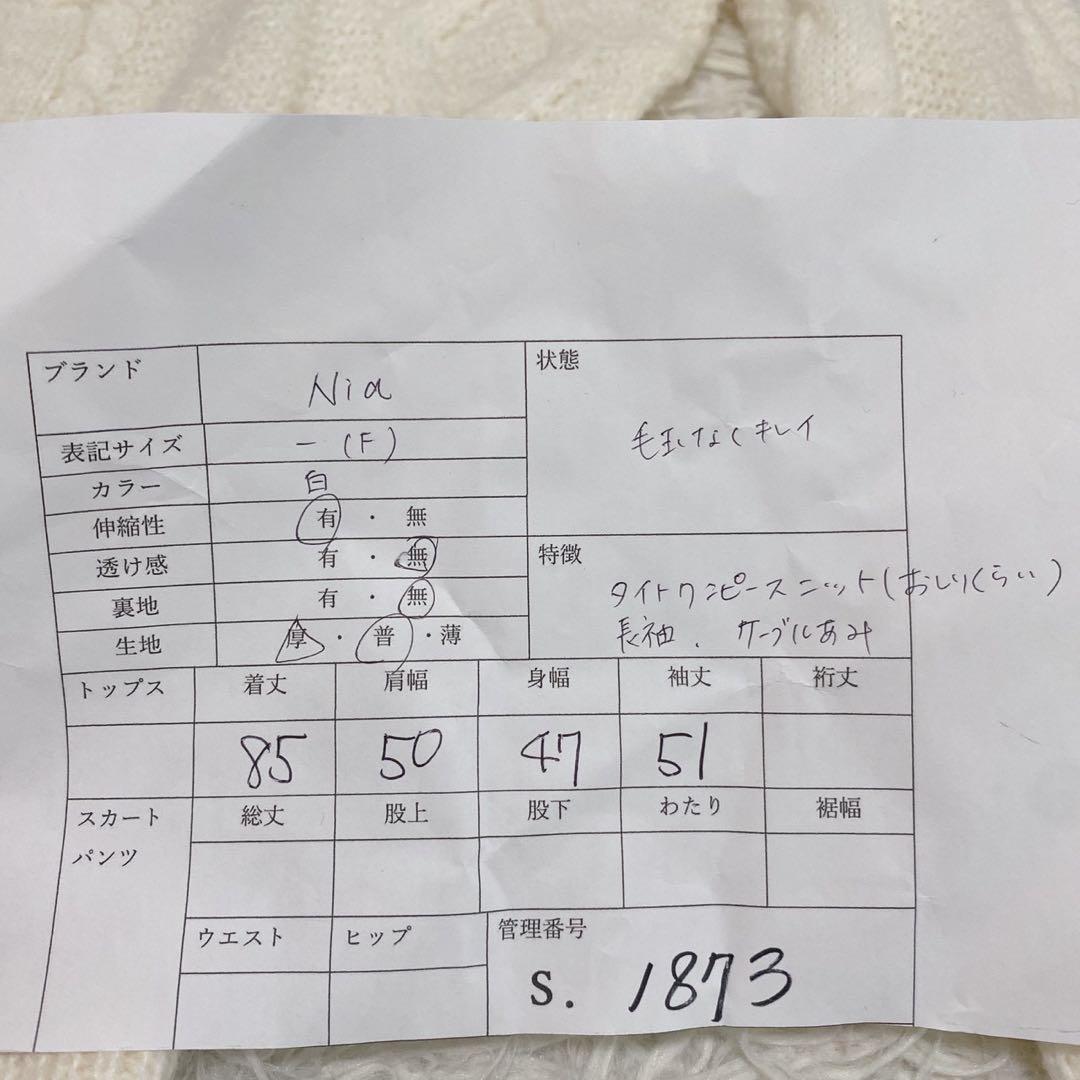 ブランド
Nia
表記サイズ
ー (F)
カラー
白
伸縮性
有 ・ 無
透け感
有 ・ 無
裏地
有 ・ 無
生地
厚 ・ 普 ・ 薄
状態
毛玉なくキレイ
特徴
タイトワンピースニット(おしりくらい)
長袖. ケーブルあみ
トップス 着丈 肩幅 身幅 袖丈 裄丈
85 50 47 51
スカート 総丈 股上 股下 わたり 裾幅
パンツ
ウエスト ヒップ
管理番号
s. 1873